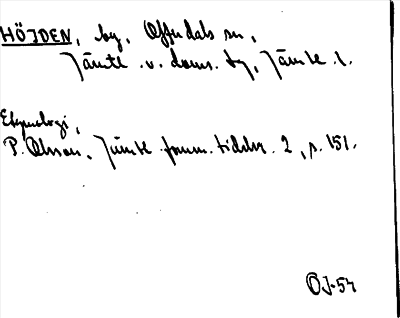 HÖJDEN, by, Offerdals sn,
Jämtl. v. doms. tg, Jämtl. l.
Etymologi,
P. Olsson, Jämtl. fornm. tidskr. 2, s. 151.
ÖJ-54